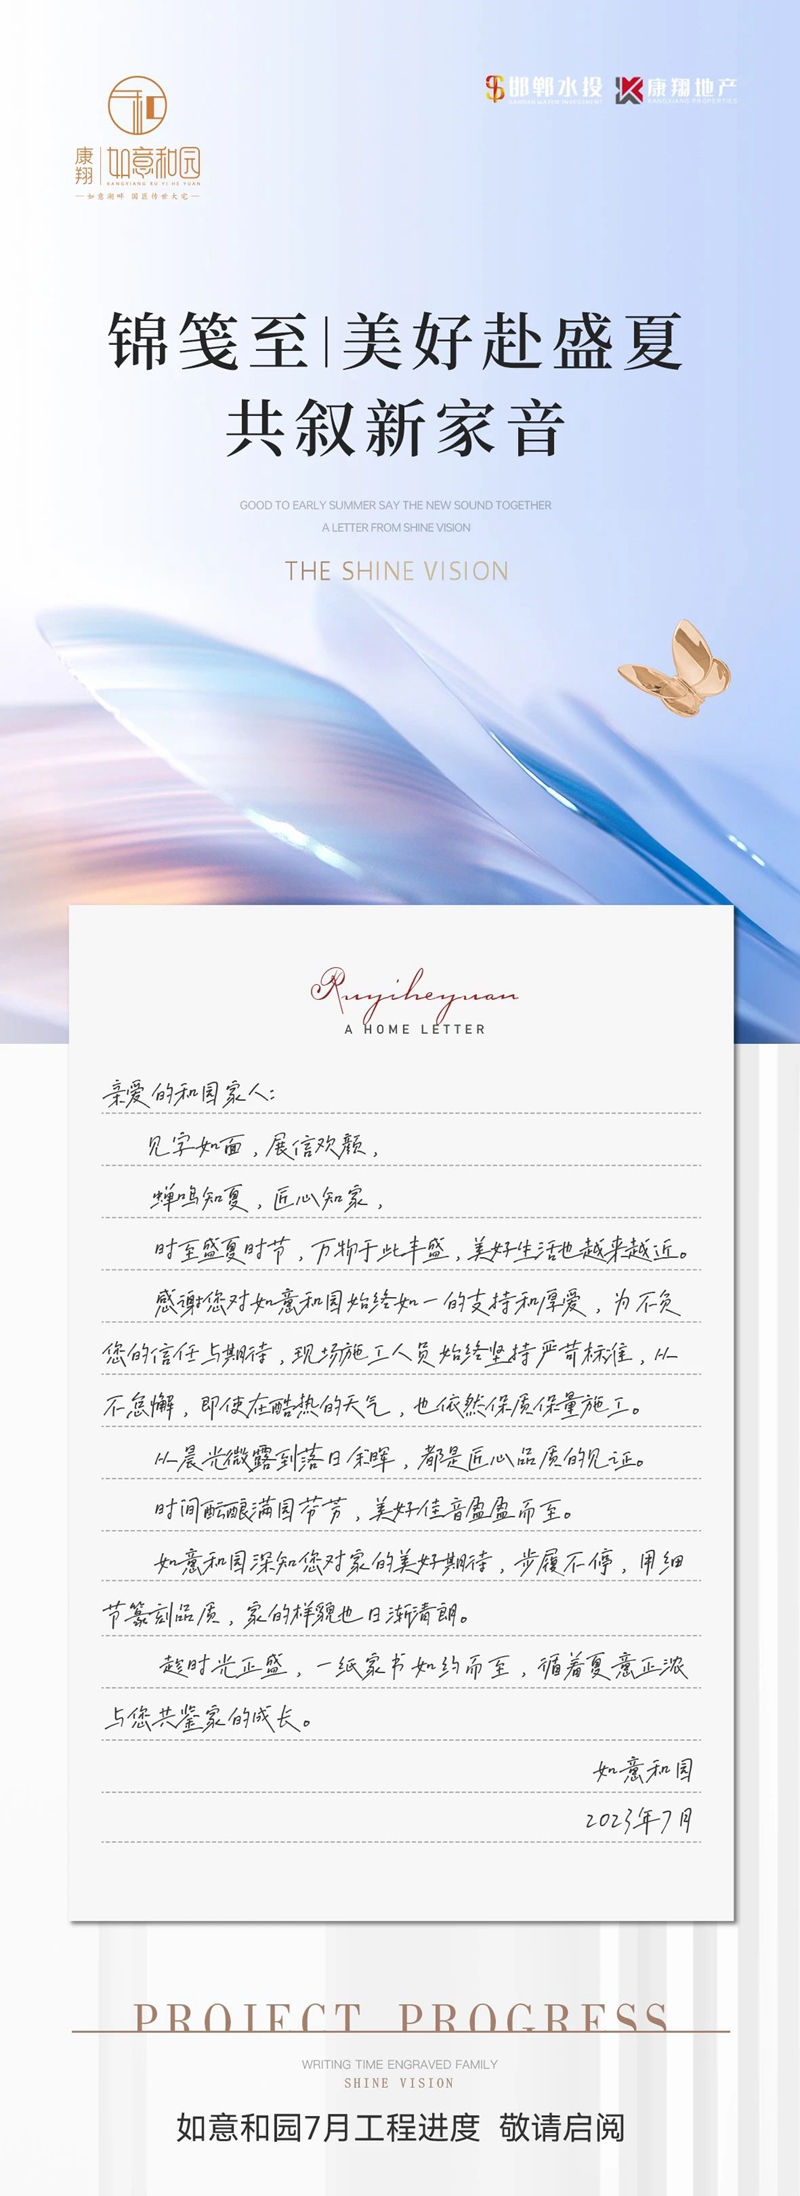 康翔 如意和园
KANGXIANG RU YI HE YUAN
如意湖畔 国匠传世大宅
邯郸水投
HANDAN WATER INVESTMENT
康翔地产
KANGXIANG PROPERTIES
锦笺至|美好赴盛夏
共叙新家音
GOOD TO EARLY SUMMER SAY THE NEW SOUND TOGETHER
A LETTER FROM SHINE VISION
THE SHINE VISION
Ruyiheyuan
A HOME LETTER
亲爱的和园家人:
见字如面，展信欢颜，
蝉鸣知夏，匠心知家，
时至盛夏时节，万物于此丰盛，美好生活也越来越近。
感谢您对如意和园始终如一的支持和厚爱，为不负
您的信任与期待，现场施工人员始终坚持严苛标准，从
不怠懈，即使在酷热的天气，也依然保质保量施工。
从晨光微露到落日余晖，都是匠心品质的见证。
时间酝酿满园芬芳，美好佳音盈盈而至。
如意和园深知您对家的美好期待，步履不停，用细
节篆刻品质，家的样貌也日渐清朗。
趁时光正盛，一纸家书如约而至，循着夏意正浓
与您共鉴家的成长。
如意和园
2023年7月
PROJECT PROGRESS
WRITING TIME ENGRAVED FAMILY
SHINE VISION
如意和园7月工程进度 敬请启阅